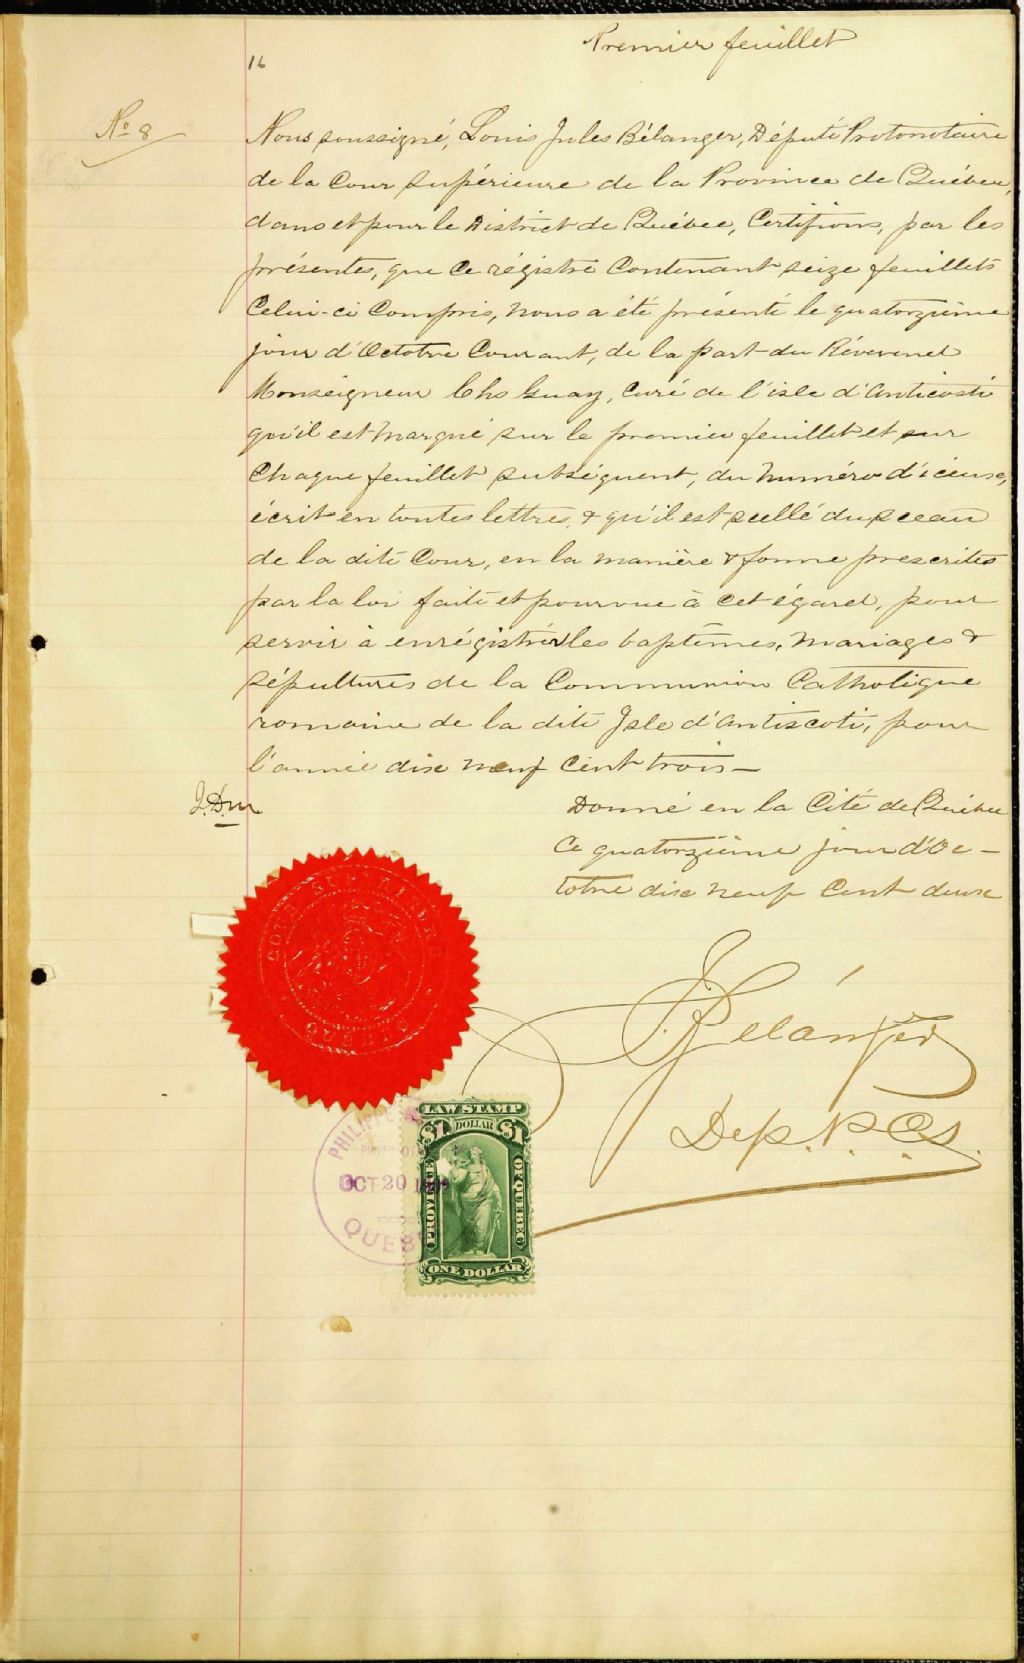 Premier feuillet
16
No 8
Nous soussigné, Louis Jules Bélanger, Député Protonotaire
de la Cour Supérieure de la Province de Québec,
dans et pour le District de Québec, Certifions, par les
présentes, que ce régistre contenant seize feuillets
Celui-ci Compris, nous a été présenté le quatorzième
jour d'Octobre Courant, de la part du Réverend
Monseigneur Chs Guay, Curé de l'isle d'Anticosti
qu'il est marqué sur le premier feuillet et sur
Chaque feuillet subséquent, du numéro d'iceux,
écrit en toutes lettres, & qu'il est scellé du sceau
de la dite Cour, en la manière & forme prescrites
par la loi faite et pourvue à cet égard, pour
servir à enrégistrer les baptêmes, mariages &
sépultures de la Communion Catholique
romaine de la dite Isle d'Antiscoti, pour
l'année dix neuf Cent trois —
Donné en la Cité de Québec
Ce quatorzième jour d'Oc-
tobre dix neuf Cent deux
Bélanger
Dep. P.C.S.
QUEBEC
LAW STAMP
$1 DOLLAR $1
PROVINCE OF QUEBEC
ONE DOLLAR
PHILIPPE
OCT 20
QUEB